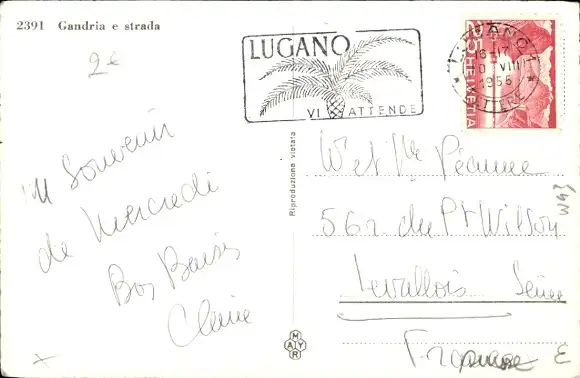 2391 Gandria e strada
2€
LUGANO
VI ATTENDE
LUGANO 1
16-17
VIII
1955
LETTERE
25
HELVETIA
Un Souvenir
de Mercredi
Bons Baisers
Claire
Riproduzione vietata
MAYR
M et Me
56 r. du Pt Wilson
Levallois Seine
France
E